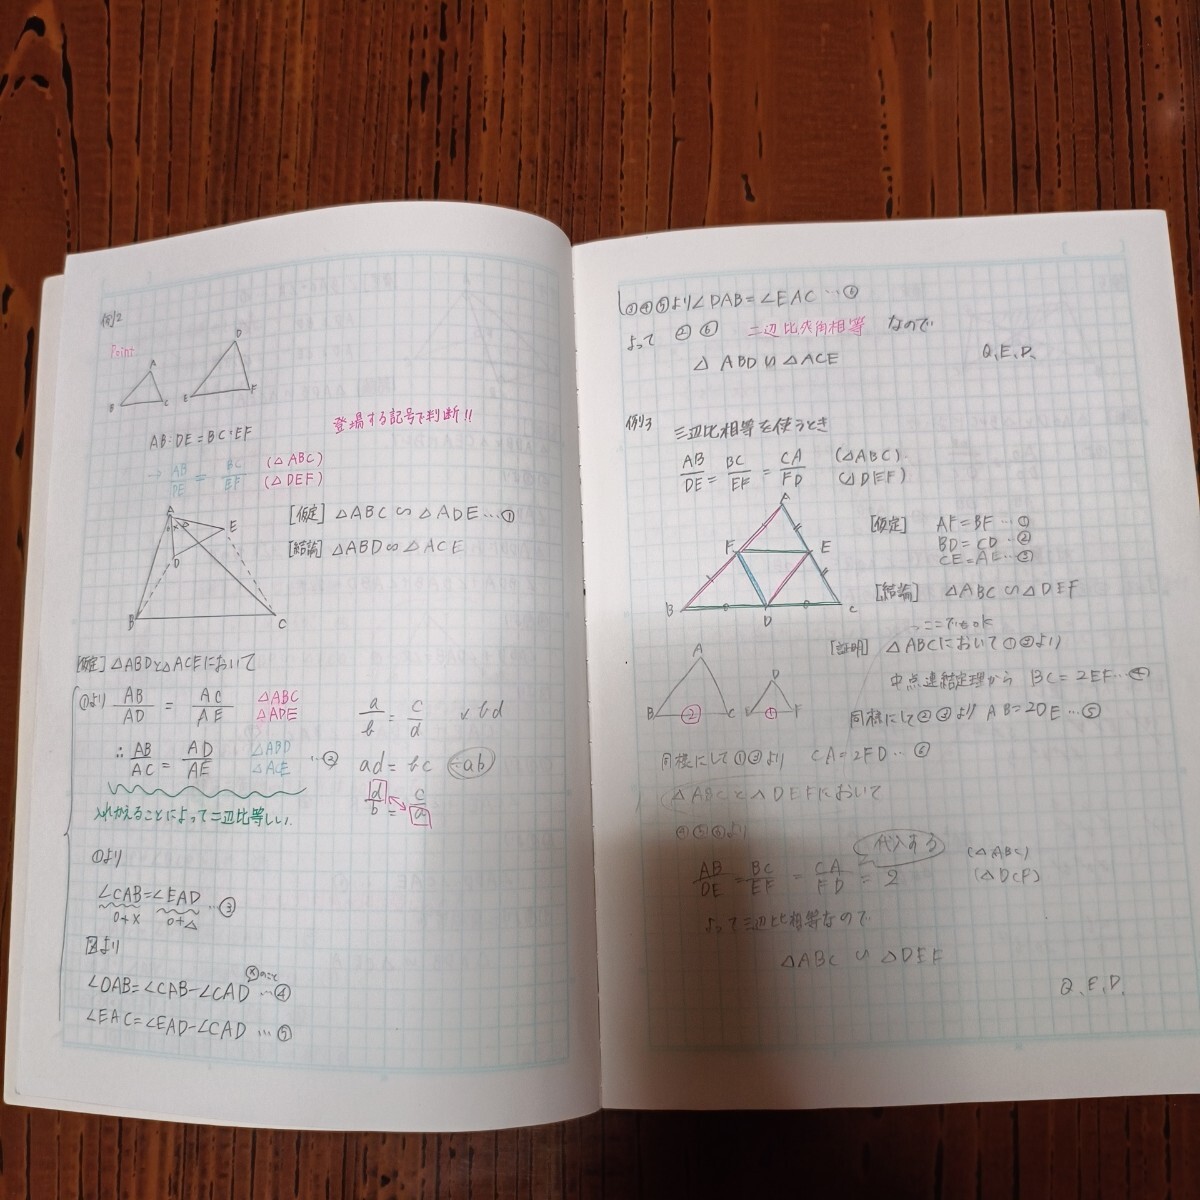 例2
Point
A
B
C
D
E
F
AB:DE=BC:EF
登場する記号で判断!!
→ AB/DE = BC/EF (△ABC) (△DEF)
A
E
D
B
C
[仮定] △ABC∽△ADE…①
[結論] △ABD∽△ACE
[仮定] △ABDと△ACEにおいて
①より AB/AD = AC/AE △ABC △ADE
∴ AB/AC = AD/AE △ABD △ACE …②
入れかえることによって二辺比等しい.
a/b = c/d ↙bd
ad=bc ÷ab
d/b = c/a
①より
∠CAB=∠EAD …③
○+× ○+△
図より
∠DAB=∠CAB-∠CAD …④
∠EAC=∠EAD-∠CAD …⑤
③④⑤より∠DAB=∠EAC …⑥
よって ②⑥ 二辺比夾角相等 なので
△ABD∽△ACE Q.E.D.
例3 三辺比相等を使うとき
AB/DE = BC/EF = CA/FD (△ABC) (△DEF)
A
F
E
B
D
C
[仮定] AF=BF …①
BD=CD …②
CE=AE …③
[結論] △ABC∽△DEF
ここでもok
[証明] △ABCにおいて①③より
中点連結定理から BC=2EF…④
同様にして②③より AB=2DE…⑤
A
B
②
C
D
E
①
F
同様にして①②より CA=2FD…⑥
△ABCと△DEFにおいて
④⑤⑥より
代入ある
AB/DE = BC/EF = CA/FD = 2 (△ABC) (△DEF)
よって三辺比相等なので
△ABC∽△DEF
Q.E.D.